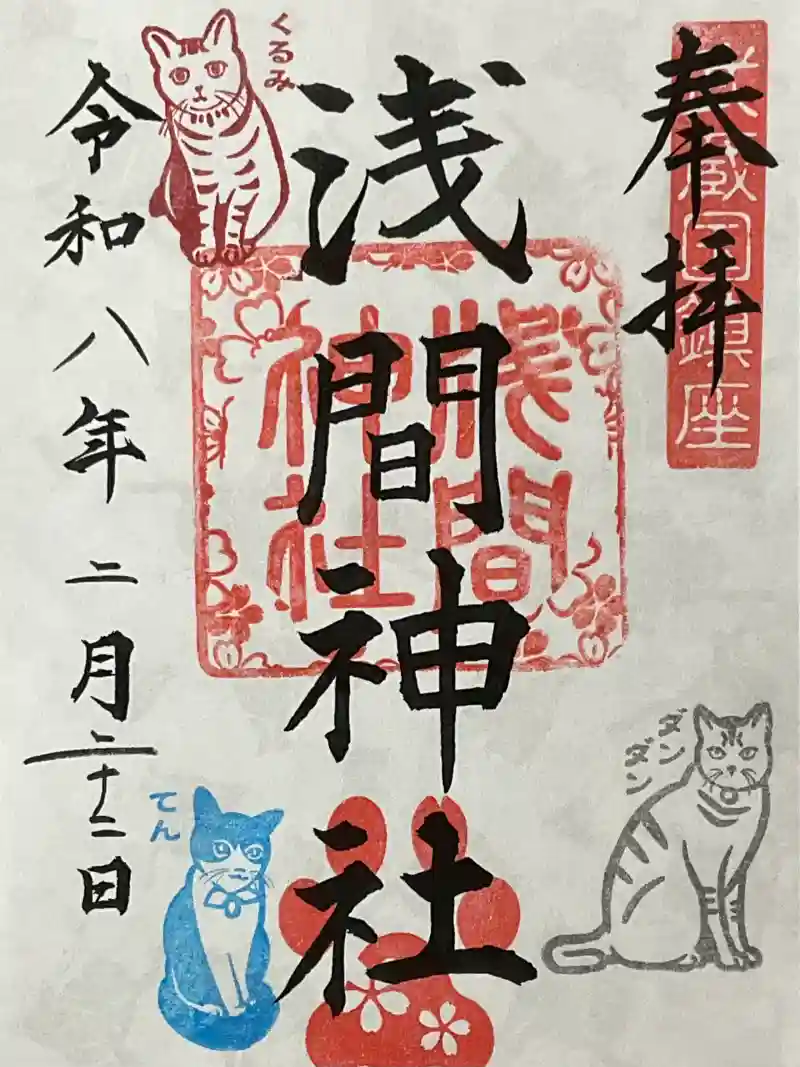 奉拝
武蔵国鎮座
浅間神社
淺間
神社
令和八年二月二十二日
くるみ
てん
ダン
ダン